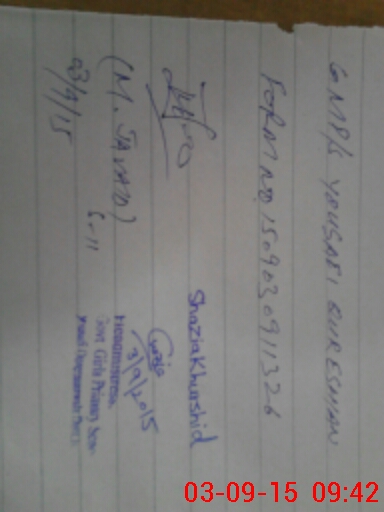 GMP/S YOUSAFI QURESHIAN
FORM NO 150903091326
Shazia Khurshid
(M. JAVAID)
S-11
03/9/15
3/9/2015
Headmistress
Govt. Girls Primary
03-09-15 09:42